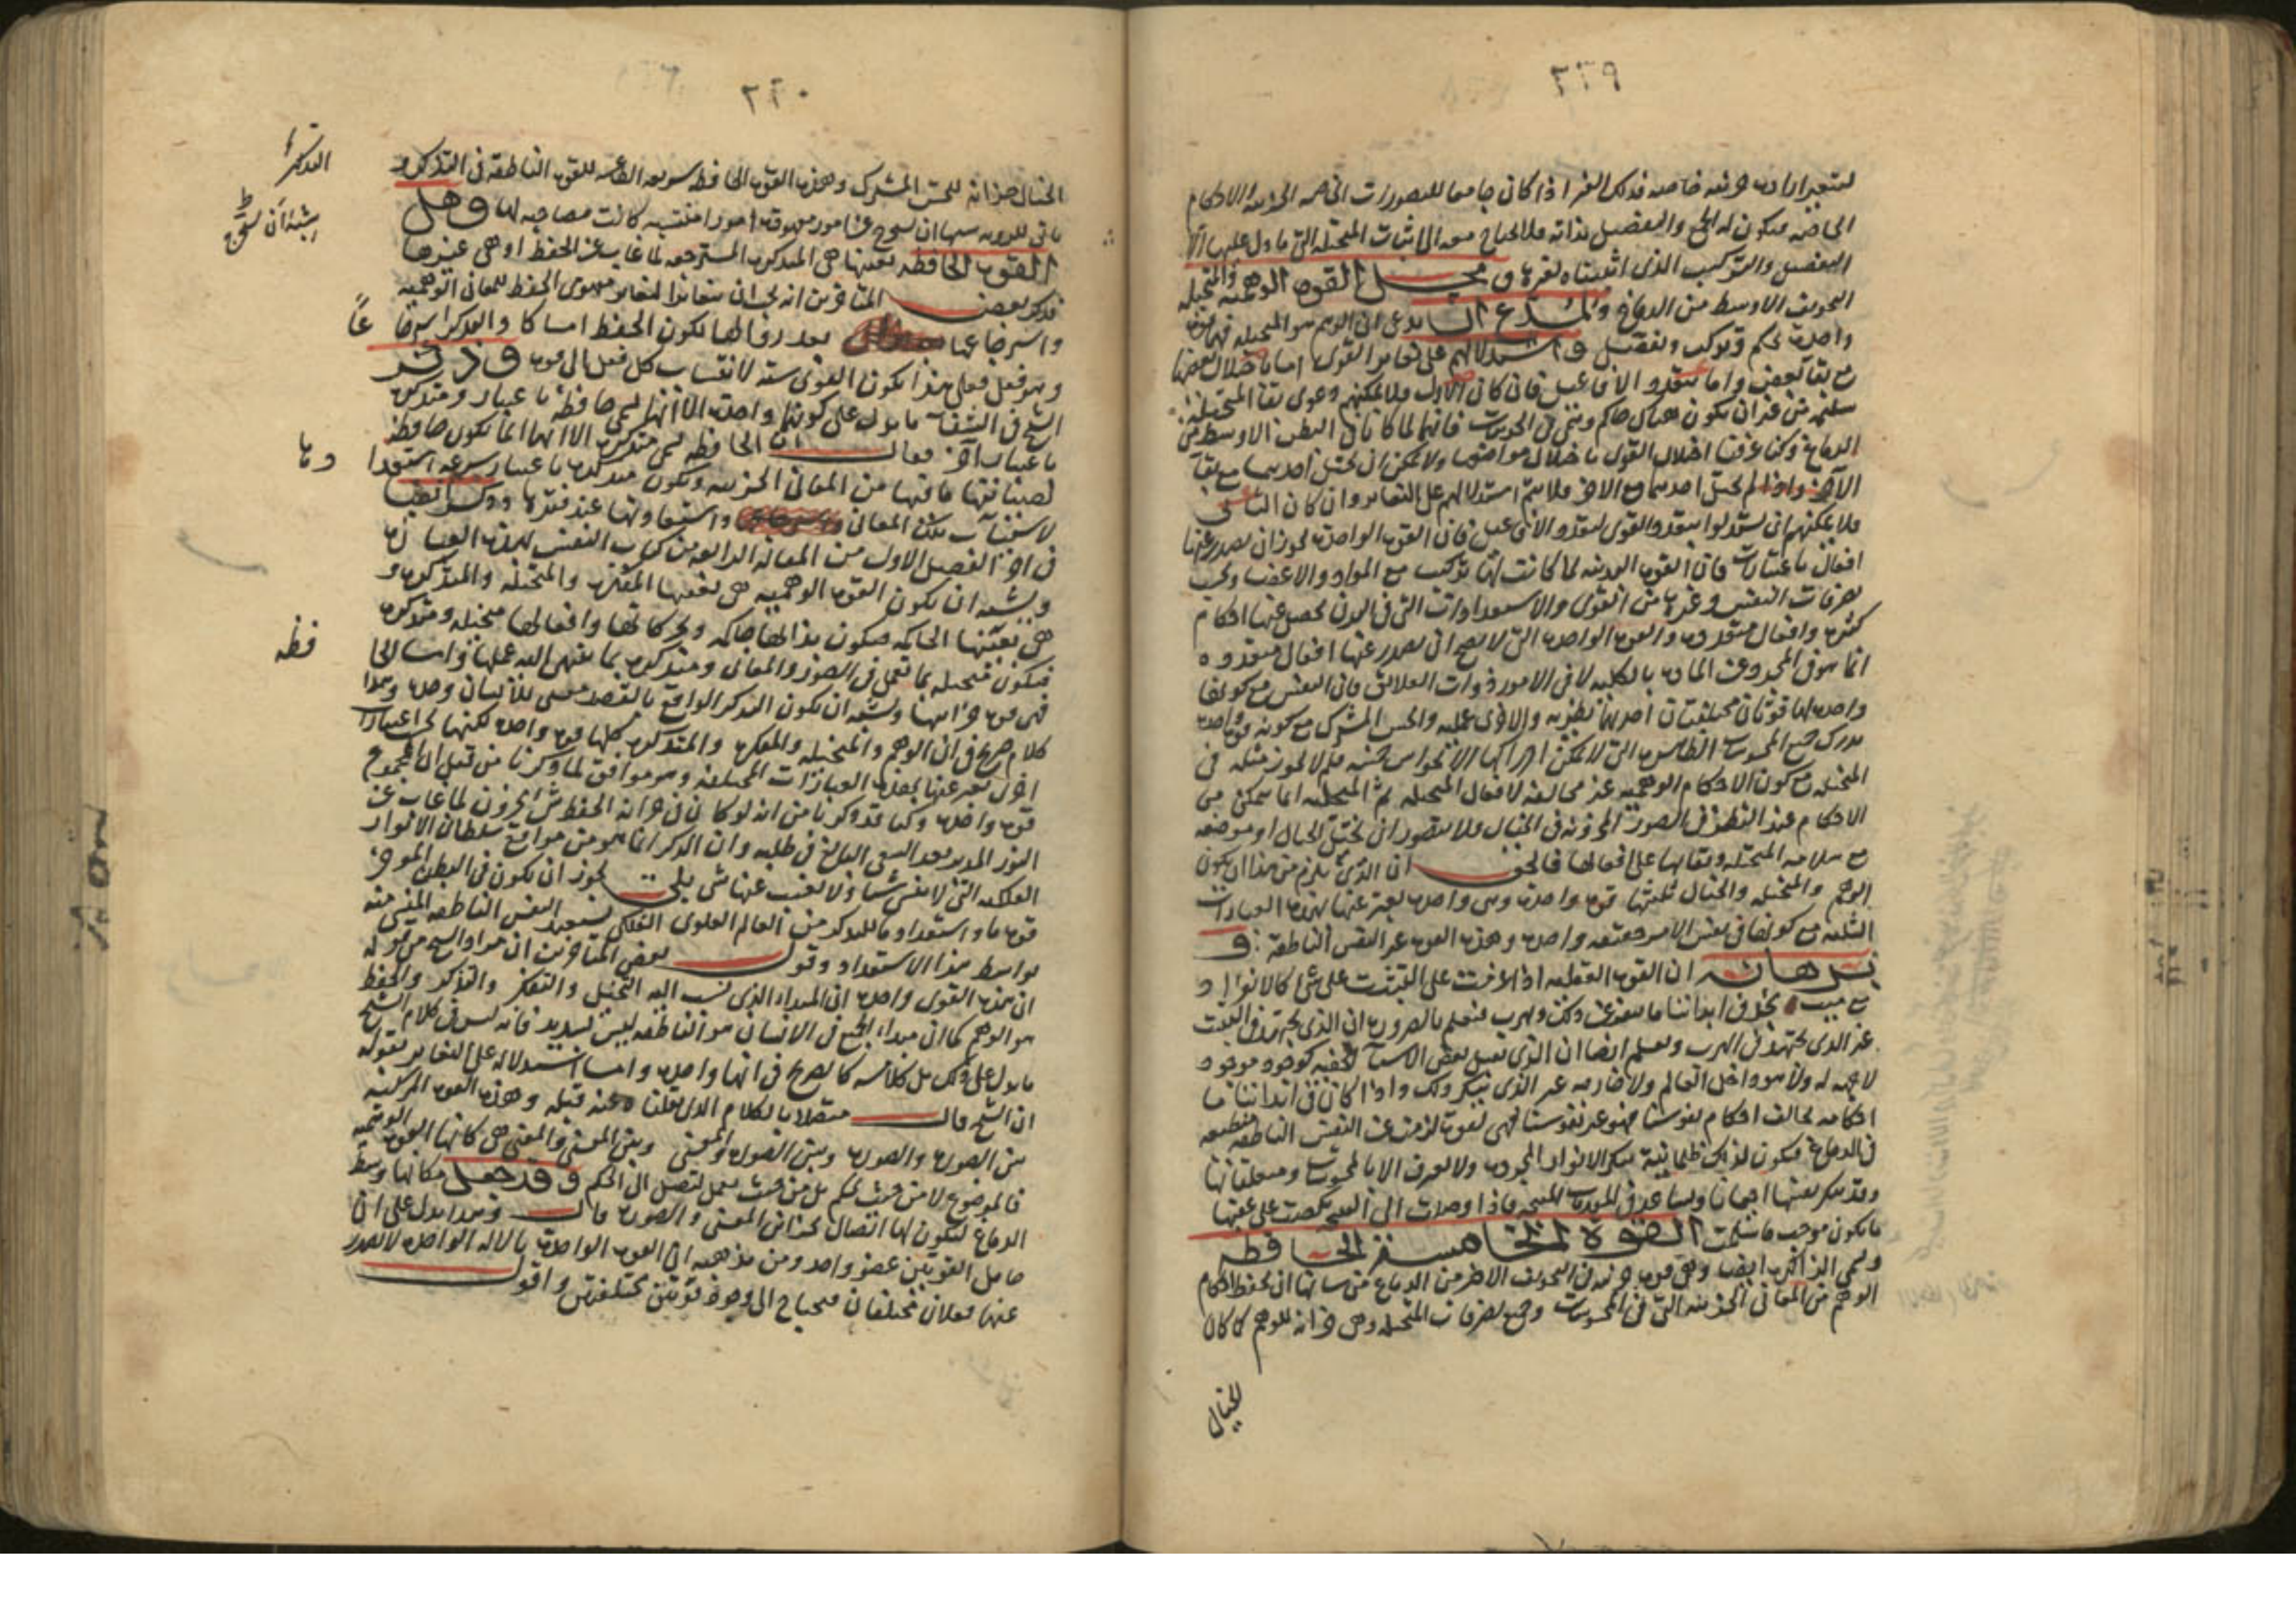 ٢٢٩
الخاصه فيكون له الجمع والتفصيل بذاته فلا احتياج معه الى اثبات المتخيله التى ما دل عليها الا
التفصيل والتركيب الذى اثبتناه لغيرها و محل القوه الوهميه والمتخيله
التجويف الاوسط من الدماغ
واحدة تحكم وتركب وتفصل و استدلالهم على تغاير القوى اما باختلال بعضها
مع بقاء بعض واما بتعدد الافاعيل فان كان الاول فلا يمكنهم دعوى بقاء المتخيلة
سليمه من غير ان يكون هناك حاكم
الدماغ وكنا عرفنا اختلال القوى باختلال مواضعها ولا يمكن ان يختل احديهما مع بقاء
الاخر واذا لم يختل احديهما مع الاخر فلا يتم استدلالهم على التغاير وان كان الثانى
فلا يمكنهم ان يستدلوا بتعدد القوى لتعدد الافاعيل فان القوه الواحدة يجوز ان يصدر عنها
افعال باعتبارات فان القوى البدنيه لما كانت لها تركب مع المواد والاعضاء
تصرفات النفس وغيرها من القوى والاستعدادات التى فى البدن يحصل عنها احكام
كثيره وافعال متعددة والقوه الواحدة التى لا يصح ان يصدر عنها افعال متعدده
انما هو فى المجرد عن المادة بالكليه لا فى الامور ذوات العلائق فان النفس مع كونها
واحدة لها قوتان مختلفتان احديهما نظريه والاخرى عمليه والحس المشترك مع كونه قوة واحدة
يدرك جميع المحسوسات الظاهره التى لا يمكن ادراكها الا بحواس خمسه فلم لا يجوز مثله فى
المتخيله مع كون الاحكام الوهميه غير مخالفه لافعال المتخيله ثم المتخيله انما يتمكن من
الاحكام عند النظر فى الصور المخزونه فى الخيال فلا يتصور ان يختل الخيال او موضعه
مع سلامه المتخيله وبقائها على افعالها فالحق ان الذى يلزم من هذا ان يكون
الوهم والمتخيله والخيال ثلثتها قوة واحدة وهى واحدة يعبر عنها بهذه العبارات
الثلثه مع كونها فى نفس الامر حقيقه واحدة وهذه القوه غير النفس الناطقة و
برهانه ان القوه العقليه اذا عزمت على التثبت على شى كالانفراد
مع ميت نجد فى ابداننا ما ينفر عن ذلك ويهرب فنعلم بالضروره ان الذى يجتهد فى التثبت
غير الذى يجتهد فى الهرب ونعلم ايضا ان الذى
لا جهه له ولا هو داخل العالم ولا خارجه غير الذى ينكر ذلك واذا كان فى ابداننا ما
احكامه تخالف احكام نفوسنا فهو غير نفوسنا فهى قوة لزمت عن النفس الناطقه منطبعه
فى الدماغ فيكون لذلك ظلمانية ينكر الانوار المجرده ولا يعترف الا بالمحسوسات ومتعلقاتها
وقد ينكر نفسها احيانا ويساعد فى المقدمات المنتجه فاذا وصلت الى النتيجه نكصت على عقبها
ما يكون موجب ما سلمت القوة الخامسة الحافظه
وتسمى الذاكره ايضا وهى قوة مرتبه فى التجويف الاخير من الدماغ من شانها ان تحفظ احكام
الوهم من المعانى الجزئيه التى فى المحسوسات وجميع تصرفات المتخيله وهى خزانه للوهم كما كان
للخيال
٢٣٠
الخيال خزانه للحس المشترك وهذه القوه الحافظه سريعه الطاعه للقوه الناطقه فى التذكير و
القوه الحافظه بعينها هى المتذكره المسترجعه لما غاب عن الحفظ او هى غيرها
فذكر بعض المتاخرين انه يجب ان يتغايرا لتغاير مهوى الحفظ للمعانى الوهميه
واسترجاعها بعد زوالها لكون الحفظ امساكا والتذكر استرجاعاً
وهو فعل فعلى هذا يكون القوى سته لانتساب كل فعل الى قوه و ذكر
الشيخ فى الشفاء ما يدل على كونهما واحدة الا انها تسمى حافظة باعتبار ومتذكره
باعتبار آخر فقال ان الحافظه تسمى متذكره الا انها انما يكون حافظه
لصيانتها ما فيها من المعانى الجزئيه ويكون متذكره باعتبار سرعه استعدادها
لاستثبات تلك المعانى واستعادتها عند فقدها وذكر ايضا
فى اخر الفصل الاول من المقاله الرابعه من كتاب النفس بهذه العباره
ويشبه ان يكون القوه الوهميه هى بعينها المفكره والمتخيله والمتذكره و
هى بعينها الحاكمه فيكون بذاتها حاكمه وبحركاتها وافعالها متخيله ومتذكره
فيكون متخيله بما تعمل فى الصور والمعانى ومتذكره بما ينتهى اليه عملها واما الحافظه
فهى قوة خزانتها ويشبه ان يكون التذكر الواقع بالقصد معنى للانسان وحده وهذا
كلام صريح فى ان الوهم والمتخيله والمفكره والمتذكره كلها قوة واحدة لكنها بحسب اعتبارات
اخر يعبر عنها بهذه العبارات المختلفه وهو موافق لما ذكرنا من قبل ان المجموع
قوة واحدة وكنا قد ذكرنا من انه لو كان فى خزانه الحفظ شى مخزون لما غاب عن
النور المدبر بعد السعى البالغ فى طلبه وان الذكر انما هو من مواقع سلطان الانوار
الفلكيه التى لا تنسى شيئا ولا يغيب عنها شى بلى يجوز ان يكون فى البطن الموخر
قوة ما واستعداد ما للتذكر من العالم العلوى الفلكى يستعيد النفس الناطقه المنسى منه
بواسطه هذا الاستعداد وقول بعض المتاخرين ان مراد الشيخ من قوله
ان هذه القوى واحدة ان المبداء الذى نسب اليه التخيل والتفكر والتذكر والحفظ
هو الوهم كما ان مبداء الجميع فى الانسان هو الناطقه ليس بسديد فانه ليس فى كلام الشيخ
ما يدل على ذلك بل كلامه كالصريح فى انها واحدة واما استدلاله على التغاير بقوله
ان الشيخ قال متصلا بالكلام الذى نقلناه عنه قبله وهذه القوه المركبه
بين الصوره والصوره وبين الصوره والمعنى وبين المعنى والمعنى هى كانها القوه الوهميه
فالموضوع لا من حيث تحكم بل من حيث تعمل لتصل الى الحكم و قد جعل مكانها وسط
الدماغ ليكون لها اتصال بخزانتى المعنى والصوره قال وهذا يدل على ان
حامل القوتين عضو واحد ومن مذهبه ان القوه الواحدة بالاله الواحده لا يصدر
عنها فعلان مختلفان فيحتاج الى وجود قوتين مختلفتين واقول